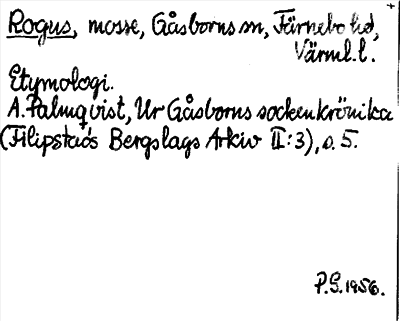 Rogus, mosse, Gåsborns sn, Färnebo hd,
Värml. l.
Etymologi.
A. Palmqvist, Ur Gåsborns sockenkrönika
(Filipstads Bergslags Arkiv II:3), s. 5.
P.G. 1956.